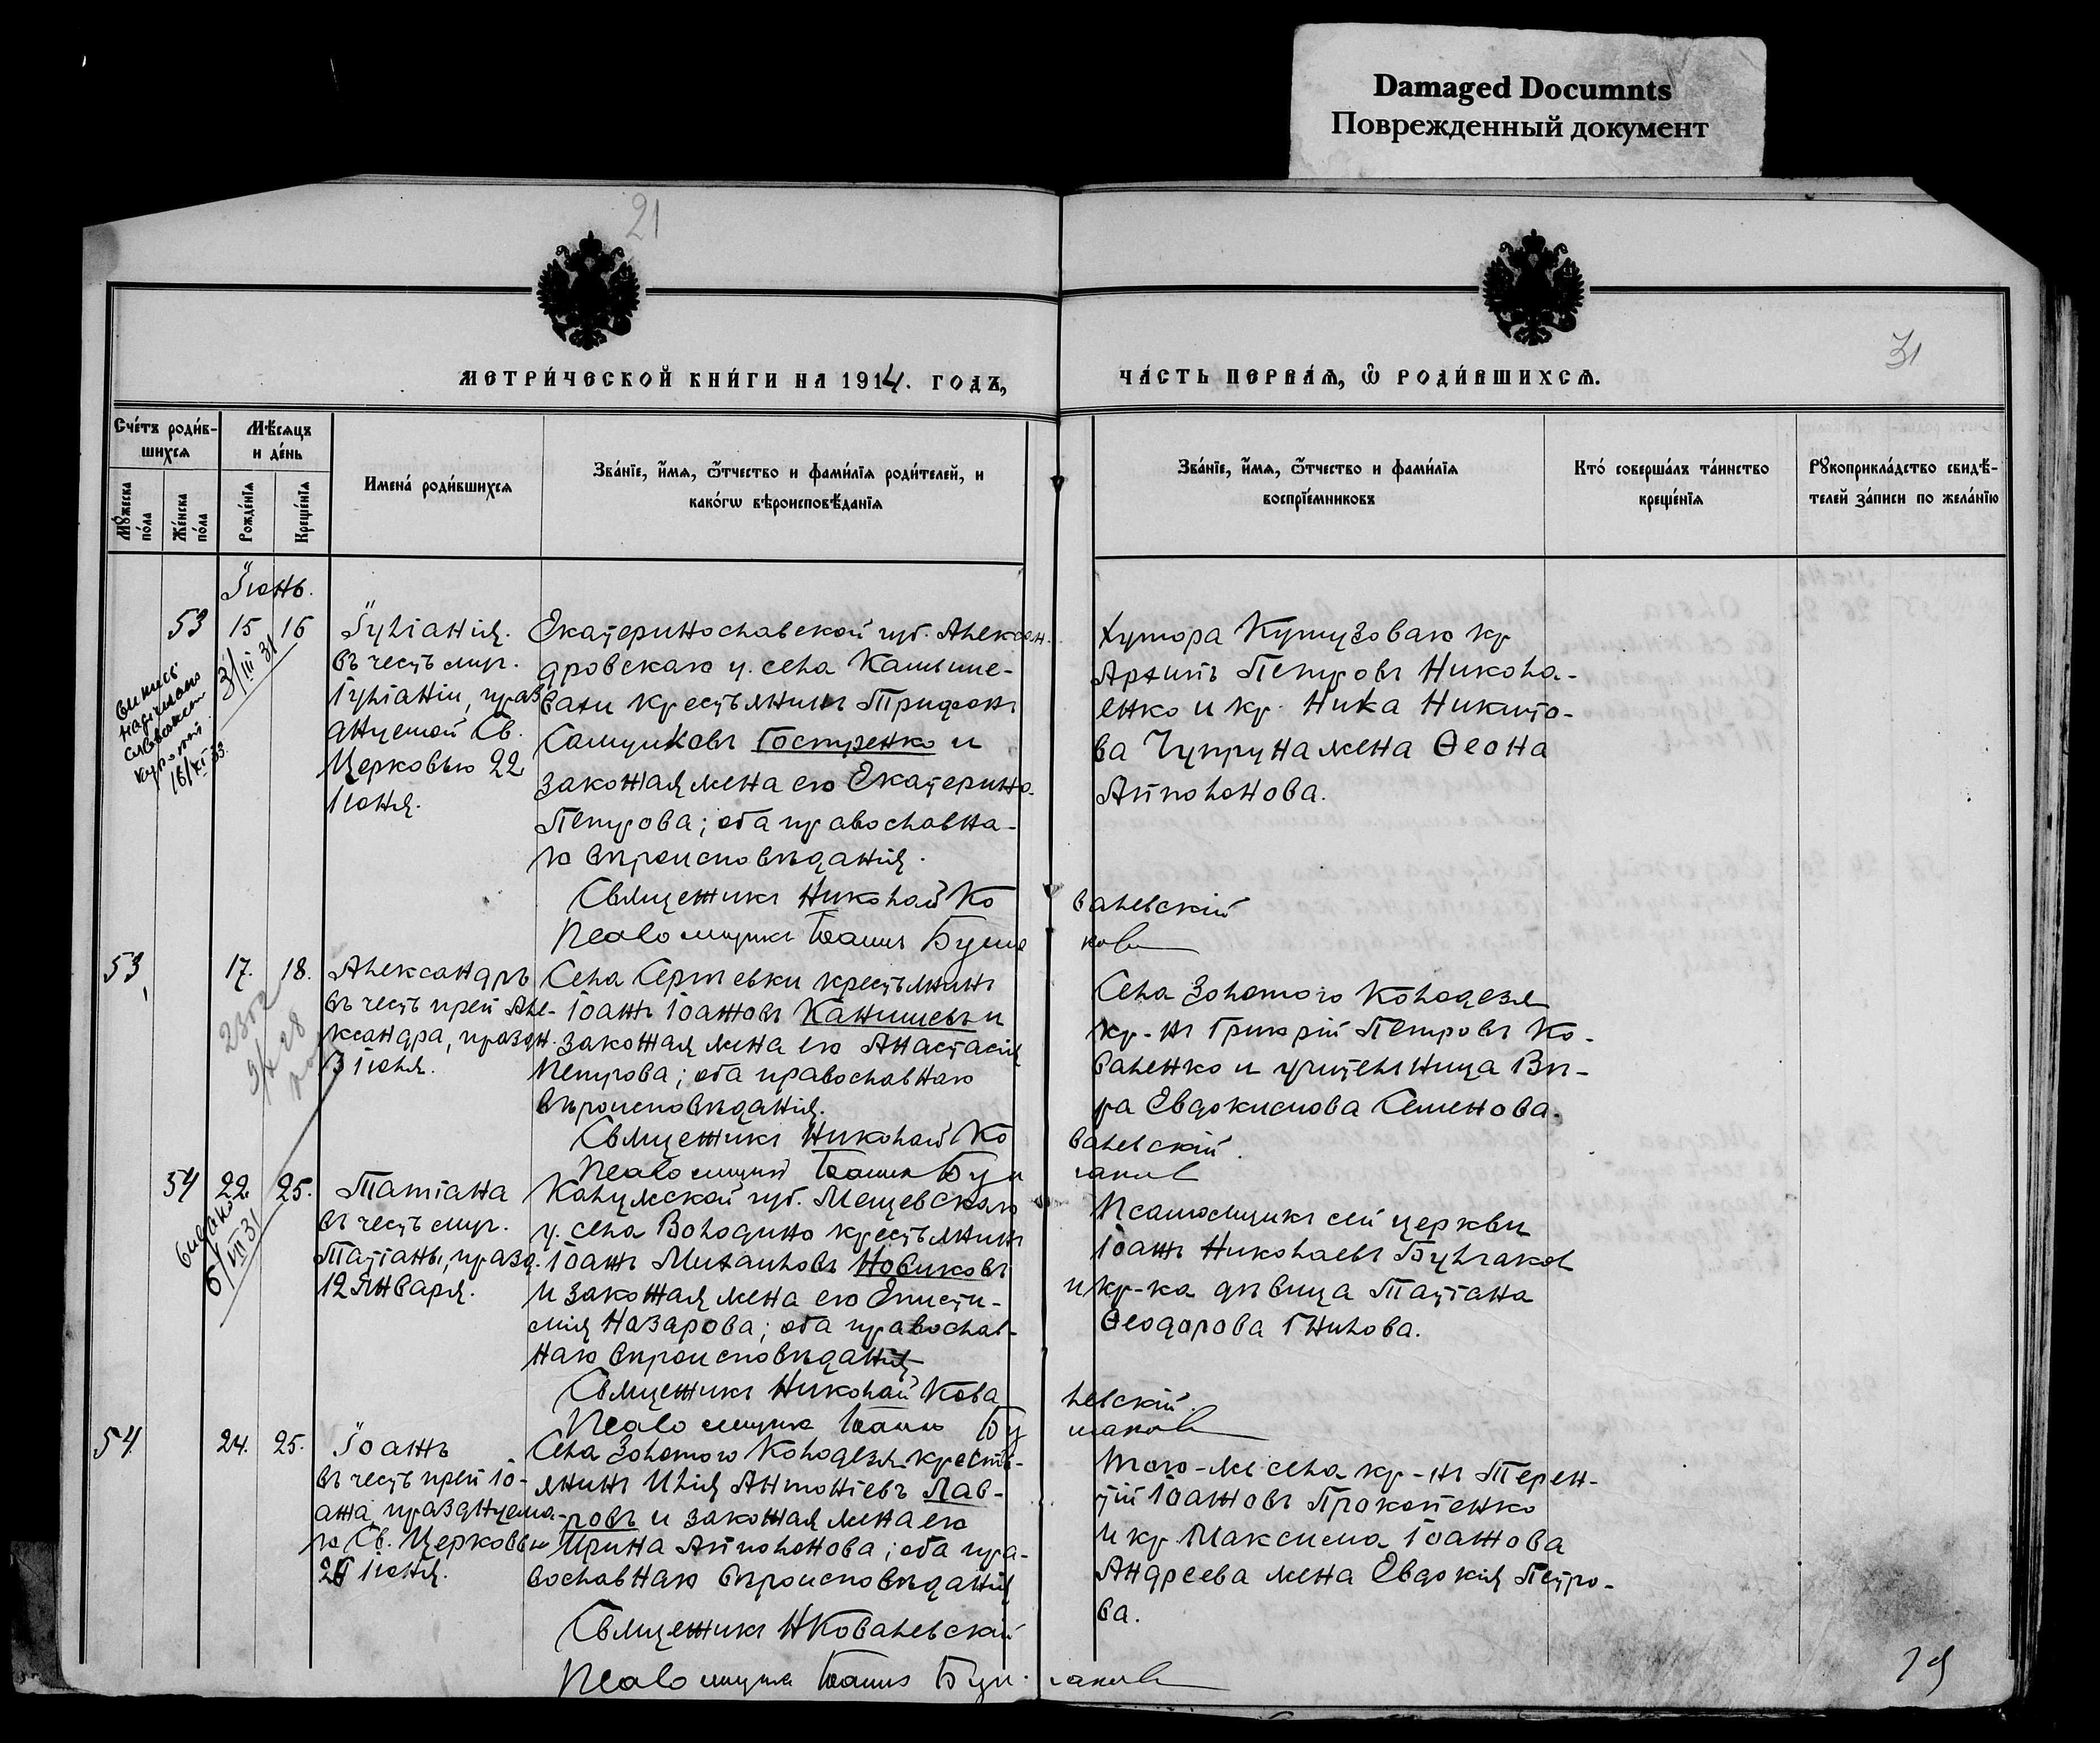 Damaged Documnts
Поврежденный документ
21
31
МЕТРИ́ЧЕСКОЙ КНИ́ГИ НА 1914. ГОДЪ,
ЧА́СТЬ ПЕРВА́Я, Ѽ РОДИ́ВШИХСЯ.
Сче́тъ роди́в-
шихся
Мѣ́сяцъ
и де́нь
Мꙋ́жеска
по́ла
Же́нска
по́ла
Рожде́нїя
Креще́нїя
Имена́ роди́вшихся
Зва́нїе, и҆́мя, ѻ҆́тчество и фами́лїя роди́телей, и
како́гѡ вѣроисповѣ́данїя
Зва́нїе, и҆́мя, ѻ҆́тчество и фами́лїя
воспрїе́мниковъ
Кто́ соверша́лъ та́инство
креще́нїя
Рꙋкоприкла́дство свидѣ́-
телей за́писи по жела́нїю
Іюнь.
53 15 16
31/III 31
16/XI 33.
Іуліанія.
въ честь муч.
Іуліаніи, праз
днуемой Св.
Церковью 22
Іюня.
Екатеринославской губ. Алексан-
дровскаго у. села Камыше-
вати крестьянинъ Трифонъ
Самуиловъ Гостренко и
законная жена его Екатерина
Петрова; оба православна-
го вѣроисповѣданія.
Хутора Кутузоваго кр
Архипъ Петровъ Никола-
енко и кр. Ника Никито-
ва Чупруна жена Ѳеона
Апполонова.
Священникъ Николай Ковалевскій
Псаломщикъ Іоаннъ
53 17. 18.
Александръ
въ честь преп Але-
ксандра, праздн.
Іюня.
Села Сергѣевки крестьянинъ
Іоаннъ Іоанновъ Канишевъ и
законная жена его Анастасія
Петрова; оба православнаго
вѣроисповѣданія.
Села Золотого Колодезя
кр-нъ Григорій Петровъ Ко-
валенко и учительница Вѣ-
ра Евдокимова Семенова.
Священникъ Николай Ковалевскій.
Псаломщикъ Іоаннъ Булгаковъ
54 22. 25.
видано
6/VII 31
Татіана
въ честь муч.
Татіаны, празд.
12 Января.
Калужской губ. Мещевскаго
у. села Володино крестьянинъ
Іоаннъ Михаиловъ Новиковъ
и законная жена его Еписти-
мія Назарова; оба православ-
наго вѣроисповѣданія
Псаломщикъ сей церкви
Іоаннъ Николаевъ Булгаковъ
и кр-ка дѣвица Татіана
Ѳеодорова Гнилова.
Священникъ Николай Ковалевскій.
Псаломщикъ Іоаннъ
54 24. 25.
Іоаннъ
въ честь преп Іо-
анна, празднуема-
го Св. Церковью
Іюня.
Села Золотого Колодезя кресть-
янинъ Илія Антоніевъ Лав-
ровъ и законная жена его
Ирина Апполонова; оба пра-
вославнаго вѣроисповѣданія
Того-же села кр-нъ Терен-
тій Іоанновъ Прокопенко
и кр Максима Іоаннова
Андреева жена Евдокія Петро-
ва.
Священникъ Н Ковалевскій
Псаломщикъ Іоаннъ Булгаковъ